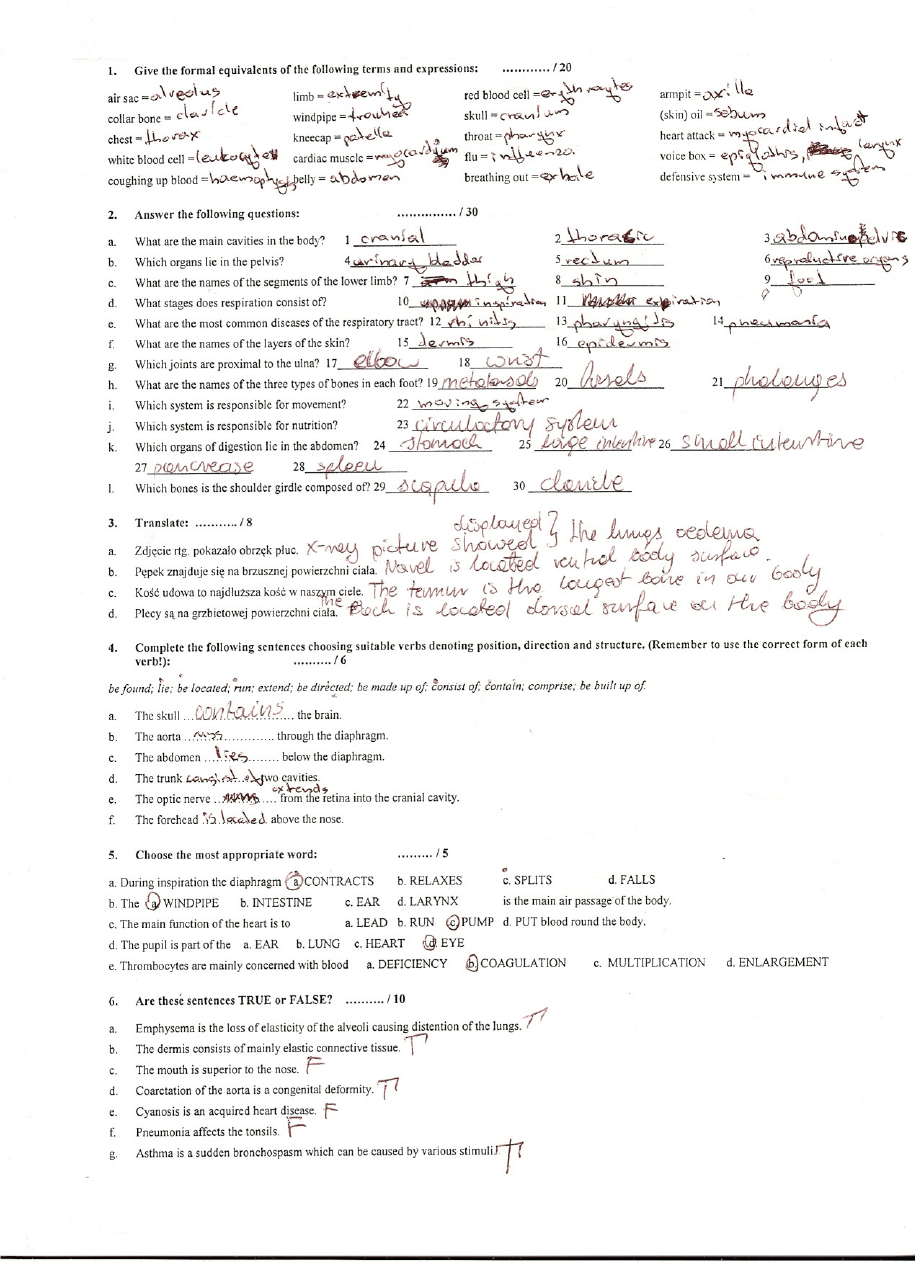 1. Give the formal equivalents of the following terms and expressions: ............ / 20
air sac = alveolus limb = extremity red blood cell = erythrocytes armpit = axilla
collar bone = clavicle windpipe = trachea skull = cranium (skin) oil = sebum
chest = thorax kneecap = patella throat = pharynx heart attack = myocardial infarct
white blood cell = leukocytes cardiac muscle = myocardium flu = influenza voice box = epiglottis, larynx
coughing up blood = haemophysis belly = abdomen breathing out = exhale defensive system = immune system
2. Answer the following questions: ............... / 30
a. What are the main cavities in the body? 1 cranial 2 thoracic 3 abdaminopelvic
b. Which organs lie in the pelvis? 4 urinary bladder 5 rectum 6 reproductive organs
c. What are the names of the segments of the lower limb? 7 thigh 8 shin 9 foot
d. What stages does respiration consist of? 10 inspiration 11 expiration
e. What are the most common diseases of the respiratory tract? 12 rhinitis 13 pharyngitis 14 pneumonia
f. What are the names of the layers of the skin? 15 dermis 16 epidermis
g. Which joints are proximal to the ulna? 17 elbow 18 wrist
h. What are the names of the three types of bones in each foot? 19 metatarsals 20 tarsals 21 phalanges
i. Which system is responsible for movement? 22 moving system
j. Which system is responsible for nutrition? 23 circulactory system
k. Which organs of digestion lie in the abdomen? 24 stomach 25 large intestine 26 small intenstine
27 pancrease 28 spleen
l. Which bones is the shoulder girdle composed of? 29 scapula 30 clavicle
3. Translate: ........... / 8
a. Zdjęcie rtg. pokazało obrzęk płuc. X-ray picture showed displayed } the lungs oedema
b. Pępek znajduje się na brzusznej powierzchni ciała. Navel is located ventral body surface.
c. Kość udowa to najdłuższa kość w naszym ciele. The femur is the longest bone in our body
d. Plecy są na grzbietowej powierzchni ciała. The Back is located dorsal surface on the body
4. Complete the following sentences choosing suitable verbs denoting position, direction and structure. (Remember to use the correct form of each
verb!): .......... / 6
be found; lie; be located; run; extend; be directed; be made up of; consist of; contain; comprise; be built up of.
a. The skull ...contains... the brain.
b. The aorta ..runs............ through the diaphragm.
c. The abdomen ..lies........ below the diaphragm.
d. The trunk consist of two cavities.
e. The optic nerve ... extends .... from the retina into the cranial cavity.
f. The forehead is located above the nose.
5. Choose the most appropriate word: ......... / 5
a. During inspiration the diaphragm a CONTRACTS b. RELAXES c. SPLITS d. FALLS
b. The a WINDPIPE b. INTESTINE c. EAR d. LARYNX is the main air passage of the body.
c. The main function of the heart is to a. LEAD b. RUN c PUMP d. PUT blood round the body.
d. The pupil is part of the a. EAR b. LUNG c. HEART d. EYE
e. Thrombocytes are mainly concerned with blood a. DEFICIENCY b COAGULATION c. MULTIPLICATION d. ENLARGEMENT
6. Are these sentences TRUE or FALSE? .......... / 10
a. Emphysema is the loss of elasticity of the alveoli causing distention of the lungs. T
b. The dermis consists of mainly elastic connective tissue. T
c. The mouth is superior to the nose. F
d. Coarctation of the aorta is a congenital deformity. T
e. Cyanosis is an acquired heart disease. F
f. Pneumonia affects the tonsils. F
g. Asthma is a sudden bronchospasm which can be caused by various stimuli. T